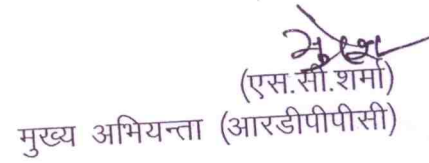 (एस.सी.शर्मा)
मुख्य अभियन्ता (आरडीपीपीसी)